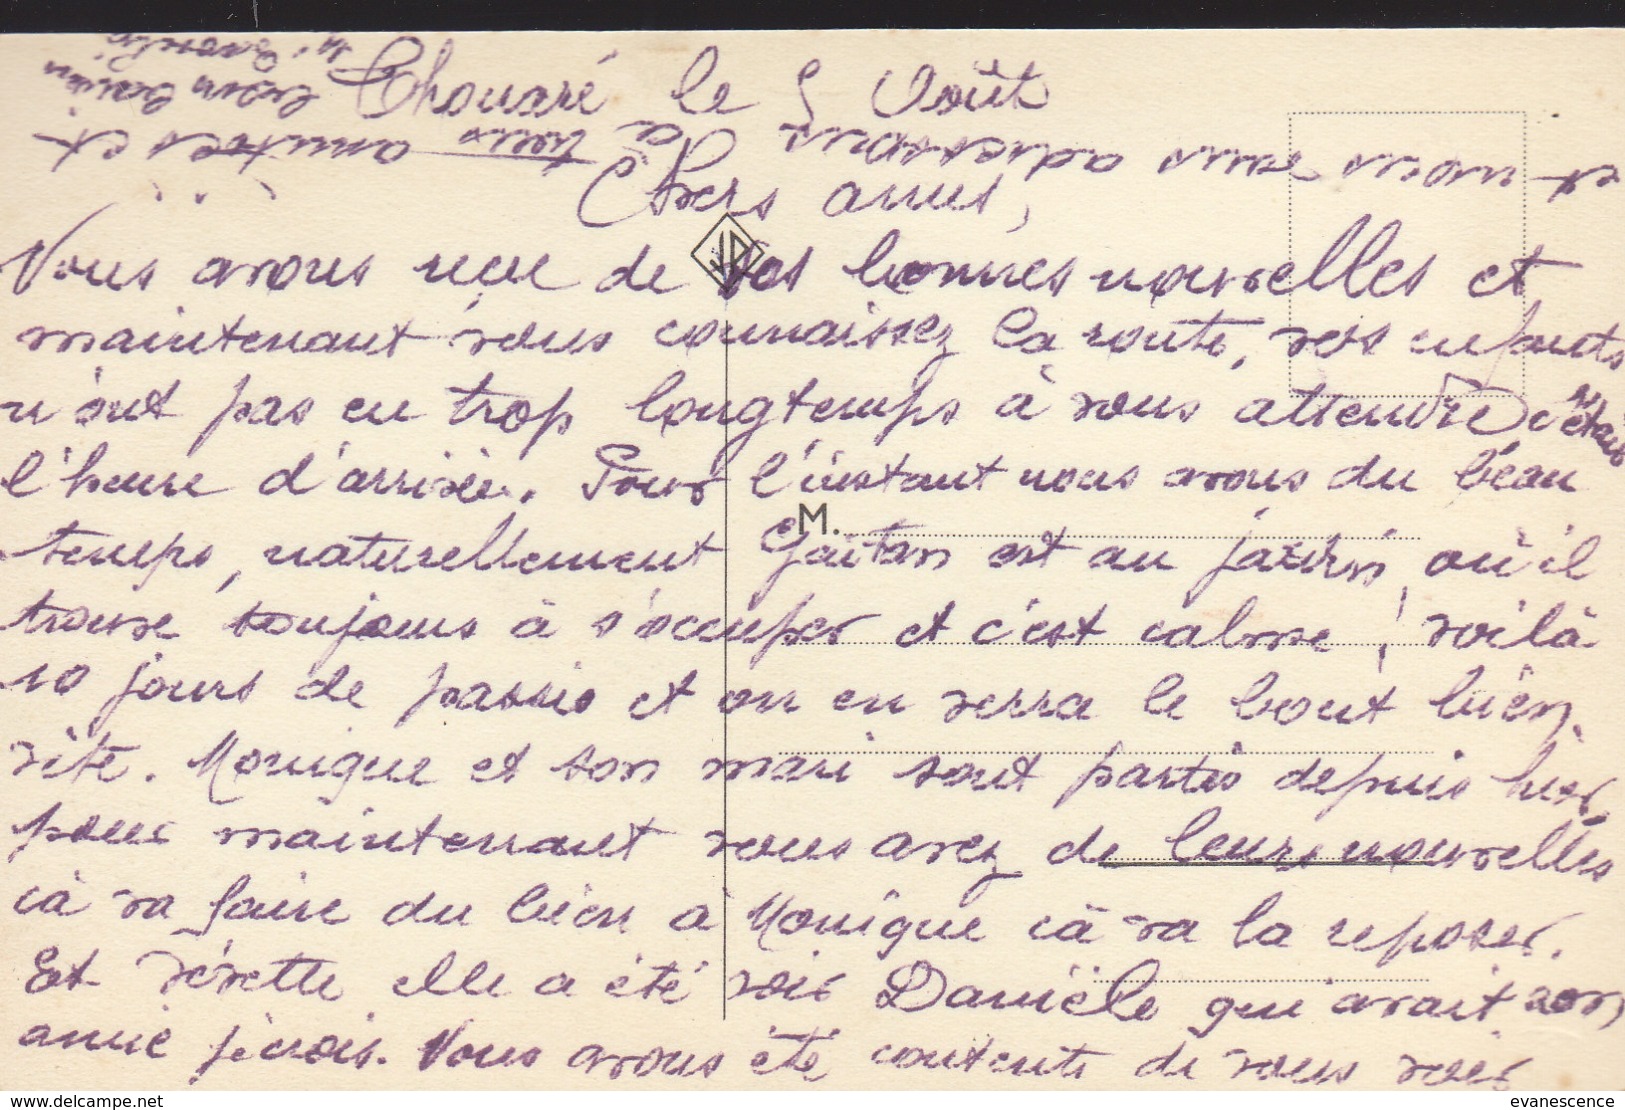 Thouaré le 5 Août
Chers amis,
Nous avons reçu de vos bonnes nouvelles et
maintenant vous connaissez la route, vos enfants
n'ont pas eu trop longtemps à vous attendre, c'était
l'heure d'arrivée. Pour l'instant nous avons du beau
temps, naturellement Gaitan est au jardin, où il
M.
trouve toujours à s'occuper et c'est calme, voilà
10 jours de passés et on en verra le bout bien
vite. Monique et son mari sont partis depuis hier,
pour maintenant vous avez de leurs nouvelles
cà va faire du bien à Monique cà va la reposer.
Et elle a été voir Danièle qui avait son
amie je crois. Nous avons été contents de vous voir
et nous vous embrassons de tous et
evanescence